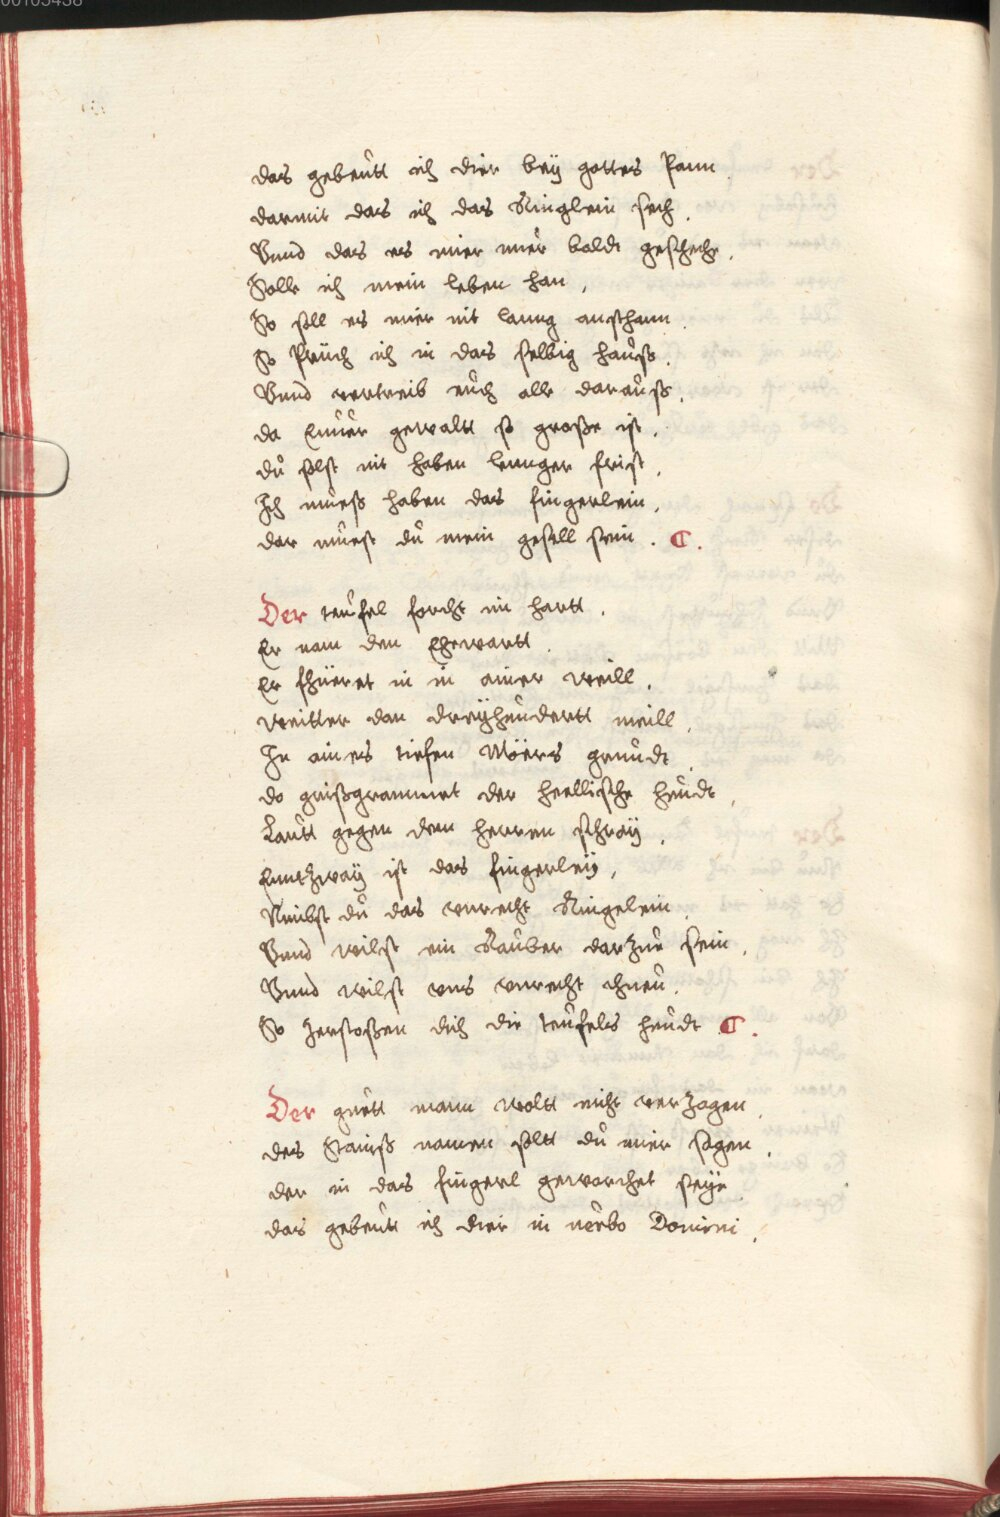 das gebeutt ich dier beÿ gottes Pann
darmit das ich das Ringlein sech.
Vnnd das es mier nuer baldt gescheche.
Solle ich mein leben han,
So soll es mier nit lanng ansthann.
So Prüch ich in das selbig hauß.
Vnnd vertreib euch alle darauß.
da Euuer gewaltt so große ist.
du solst nit haben lennger frist.
Ich mueß haben das fingerlein.
dar muest du mein gesell sein. ¶.
Der teufel forcht im hartt.
Er nam den Ehewartt.
Er fhüeret in in ainer weill.
weitter dan dreÿhundertt meill.
In aines tiefen Möers grundt.
do grißgrammet der hellische hundt,
Lautt gegen dem herren schraÿ,
Enntzwaÿ ist das fingerleÿ,
Nimbst du das vnrecht Ringelein
Vnnd wilst ein Rauber darzue sein.
Vnnd wilst vns vnrecht thuen.
So zerstoßen dich die teufels hundt ¶.
Der guett mann woltt nicht verzagen.
des Stainß namen soltt du mier sagen.
der in das fingerl geworchet seÿe.
das gebeutt ich dier in uerbo Domini.